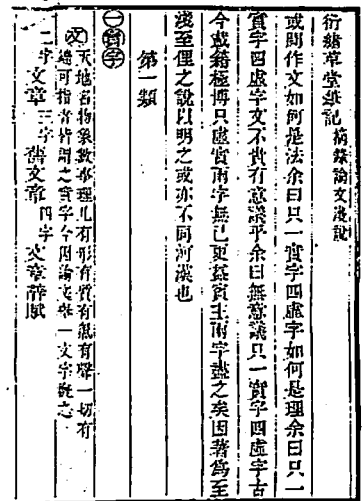 衍緒草堂筆記 摘錄論文淺說
或問作文如何是法余曰只一實字四虛字如何是理余曰只一
實字四虛字文不貴有意議乎余曰無意議只一實字四虛字古
今載籍極博只虛實兩字無已更墓賓主兩字盡之矣因著為至
淺至俚之說以明之或亦不同河漢也
第一類
一實字
文 天地名物象數事理凡有形有質有氣有聲一切有
總可指者皆謂之實字今因論文舉一文字槩之
二字 文章 三字 舊文章 四字 文章辭賦